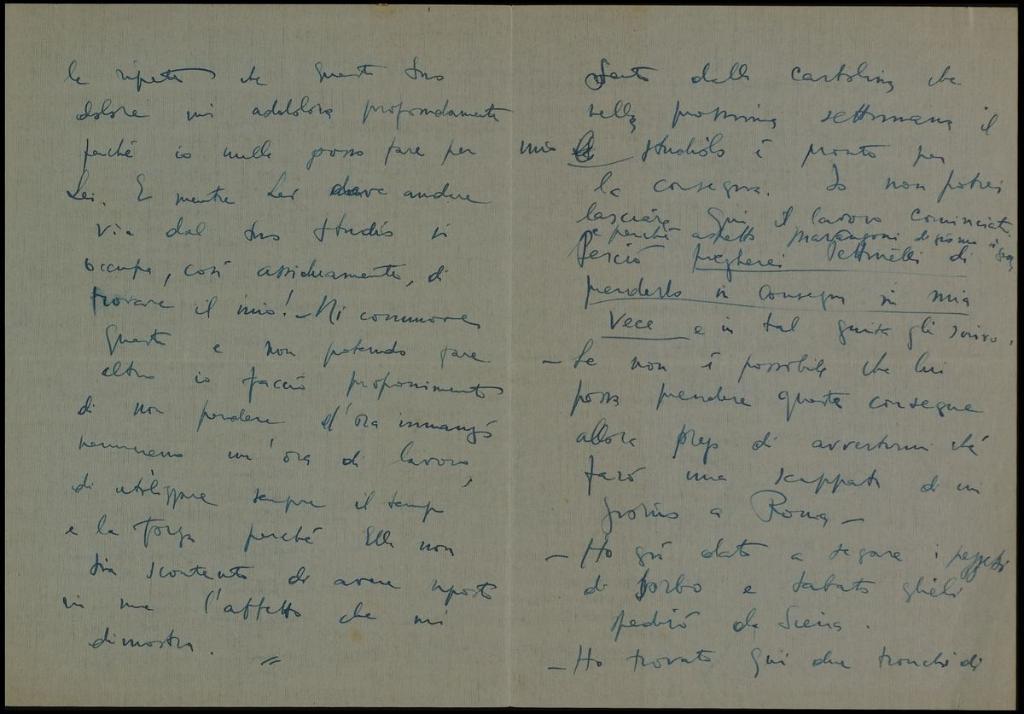 le ripeto che questo suo
dolore mi addolora profondamente
perché io nulla posso fare per
Lei. E mentre Lei deve andare
via dal suo studio si
occupa, così assiduamente, di
trovare il mio! - Mi commuove
questo e non potendo fare
altro io faccio proponimento
di non perdere d'ora innanzi
nemmeno un'ora di lavoro,
di utilizzare sempre il tempo
e la forza perché Ella non
sia scontento di avere riposto
in me l'affetto che mi
dimostra.
Sento dalla cartolina che
nella prossima settimana il
mio studiolo è pronto per
la consegna. Io non potrei
lasciare qui il lavoro cominciato
e perché aspetto marangoni
Perciò pregherei Pettinelli di
prenderlo in consegna in mia
vece e in tal guisa gli scrivo.
- Se non è possibile che lui
possa prendere questa consegna
allora prego di avvertirmi ché
farò una scappata di un
giorno a Roma -
- Ho già dato a segare i pezzetti
di sorbo e sabato glieli
spedirò da Siena.
- Ho trovato qui due tronchi di